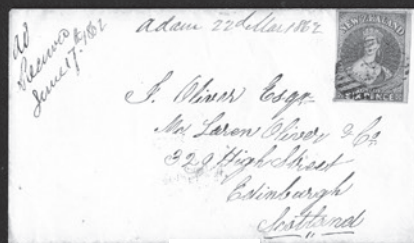 Adam 22d Mar 1862
NEW ZEALAND
SIX PENCE
June 17th/1862
F. Oliver Esqr
Mrs Laren Oliver & Co
329 High Street
Edinburgh
Scotland